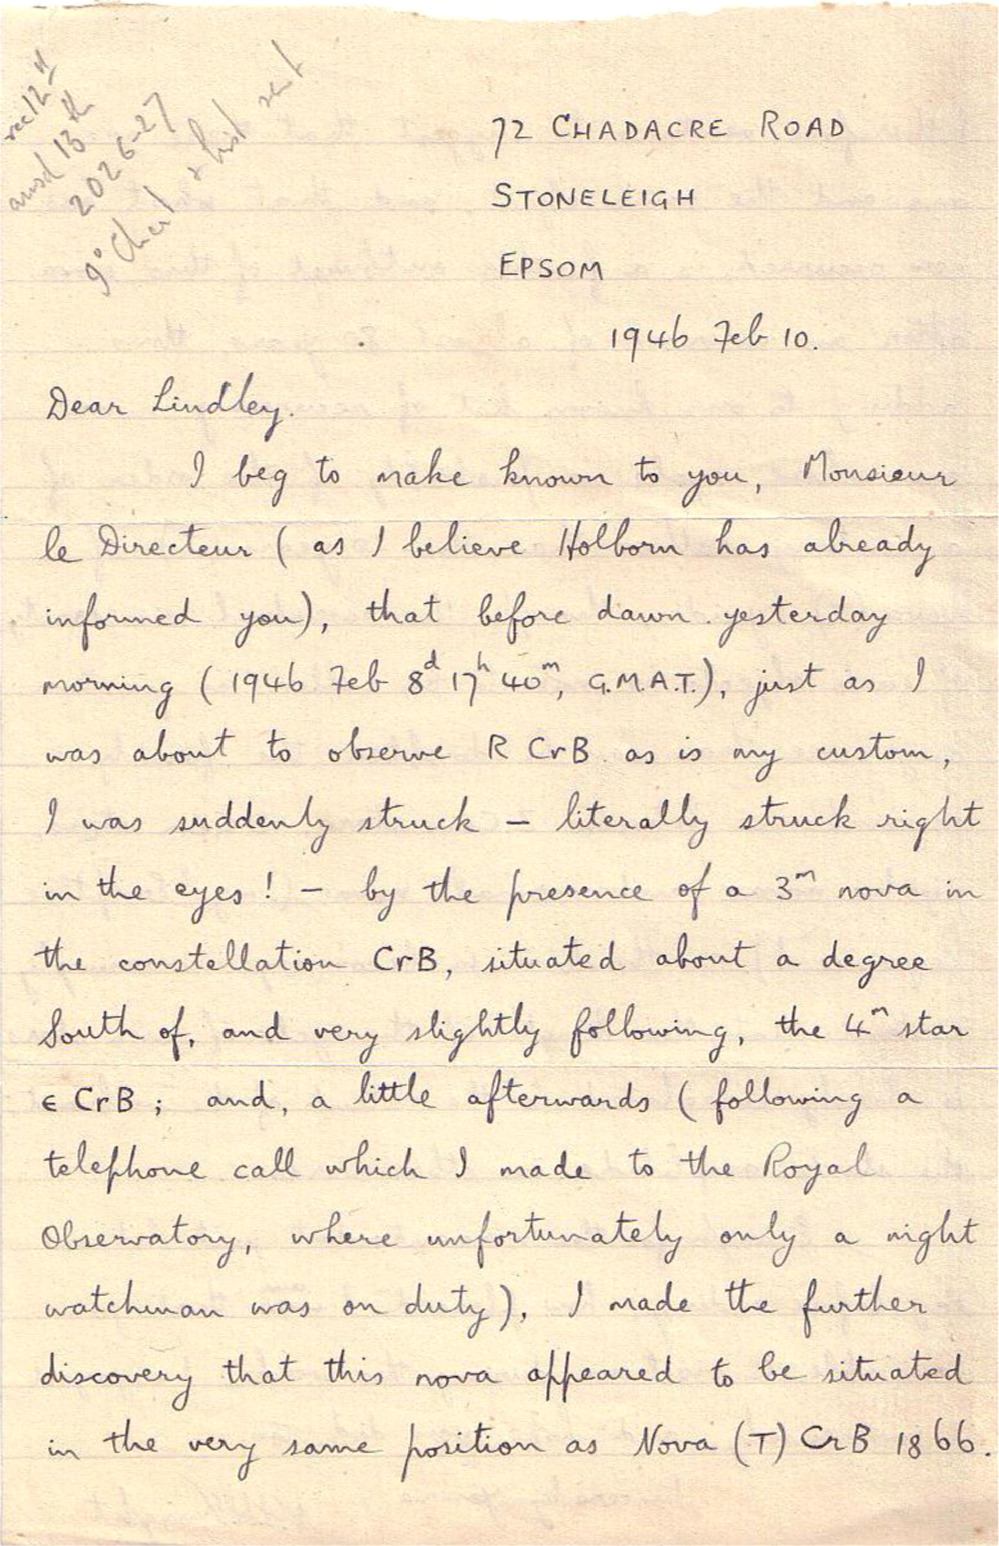 rec 12th
ansd 13th
2026-27
9° Chart & list sent
72 CHADACRE ROAD
STONELEIGH
EPSOM
1946 Feb 10.
Dear Lindley.
I beg to make known to you, Monsieur
le Directeur ( as I believe Holborn has already
informed you), that before dawn yesterday
morning ( 1946 Feb 8d 17h 40m, G.M.A.T.), just as I
was about to observe R CrB as is my custom,
I was suddenly struck — literally struck right
in the eyes ! — by the presence of a 3m nova in
the constellation CrB, situated about a degree
South of, and very slightly following, the 4m star
ϵ CrB ; and, a little afterwards ( following a
telephone call which I made to the Royal
Observatory, where unfortunately only a night
watchman was on duty), I made the further
discovery that this nova appeared to be situated
in the very same position as Nova (T) CrB 1866.